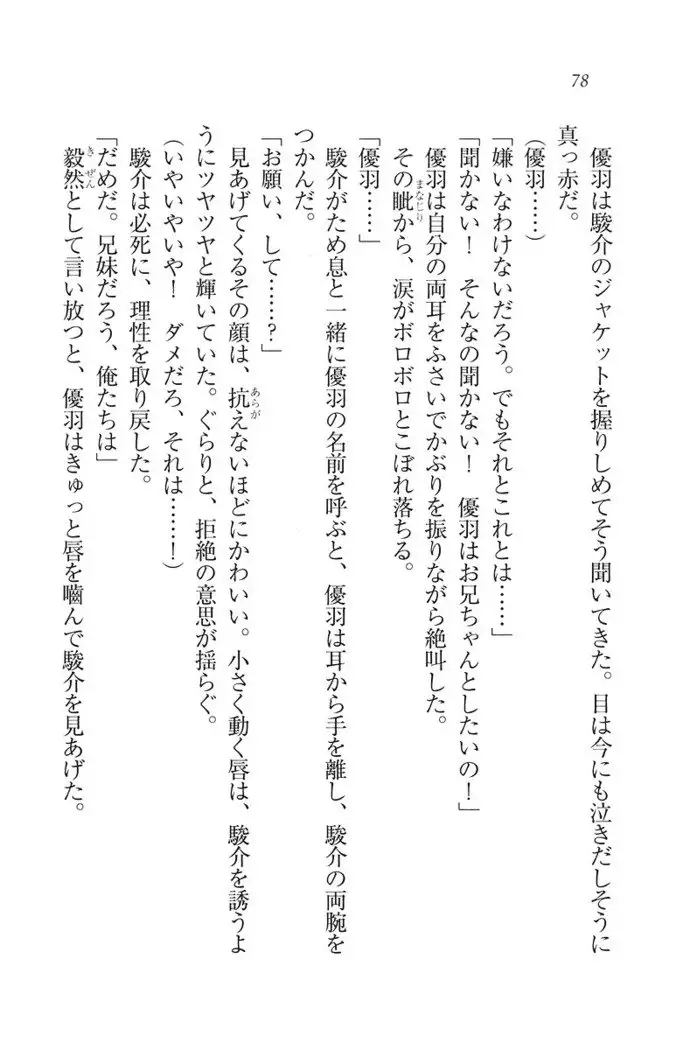 78
優羽は駿介のジャケットを握りしめてそう聞いてきた。目は今にも泣きだしそうに
真っ赤だ。
(優羽……)
「嫌いなわけないだろう。でもそれとこれとは……」
「聞かない! そんなの聞かない! 優羽はお兄ちゃんとしたいの!」
優羽は自分の両耳をふさいでかぶりを振りながら絶叫した。
その眦から、涙がボロボロとこぼれ落ちる。
「優羽……」
駿介がため息と一緒に優羽の名前を呼ぶと、優羽は耳から手を離し、駿介の両腕を
つかんだ。
「お願い、して……?」
見あげてくるその顔は、抗えないほどにかわいい。小さく動く唇は、駿介を誘うよ
うにツヤツヤと輝いていた。ぐらりと、拒絶の意思が揺らぐ。
(いやいやいや! ダメだろ、それは……!)
駿介は必死に、理性を取り戻した。
「だめだ。兄妹だろう、俺たちは」
毅然として言い放つと、優羽はきゅっと唇を噛んで駿介を見あげた。